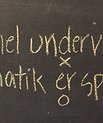 nel underv
x
natik er sp
o